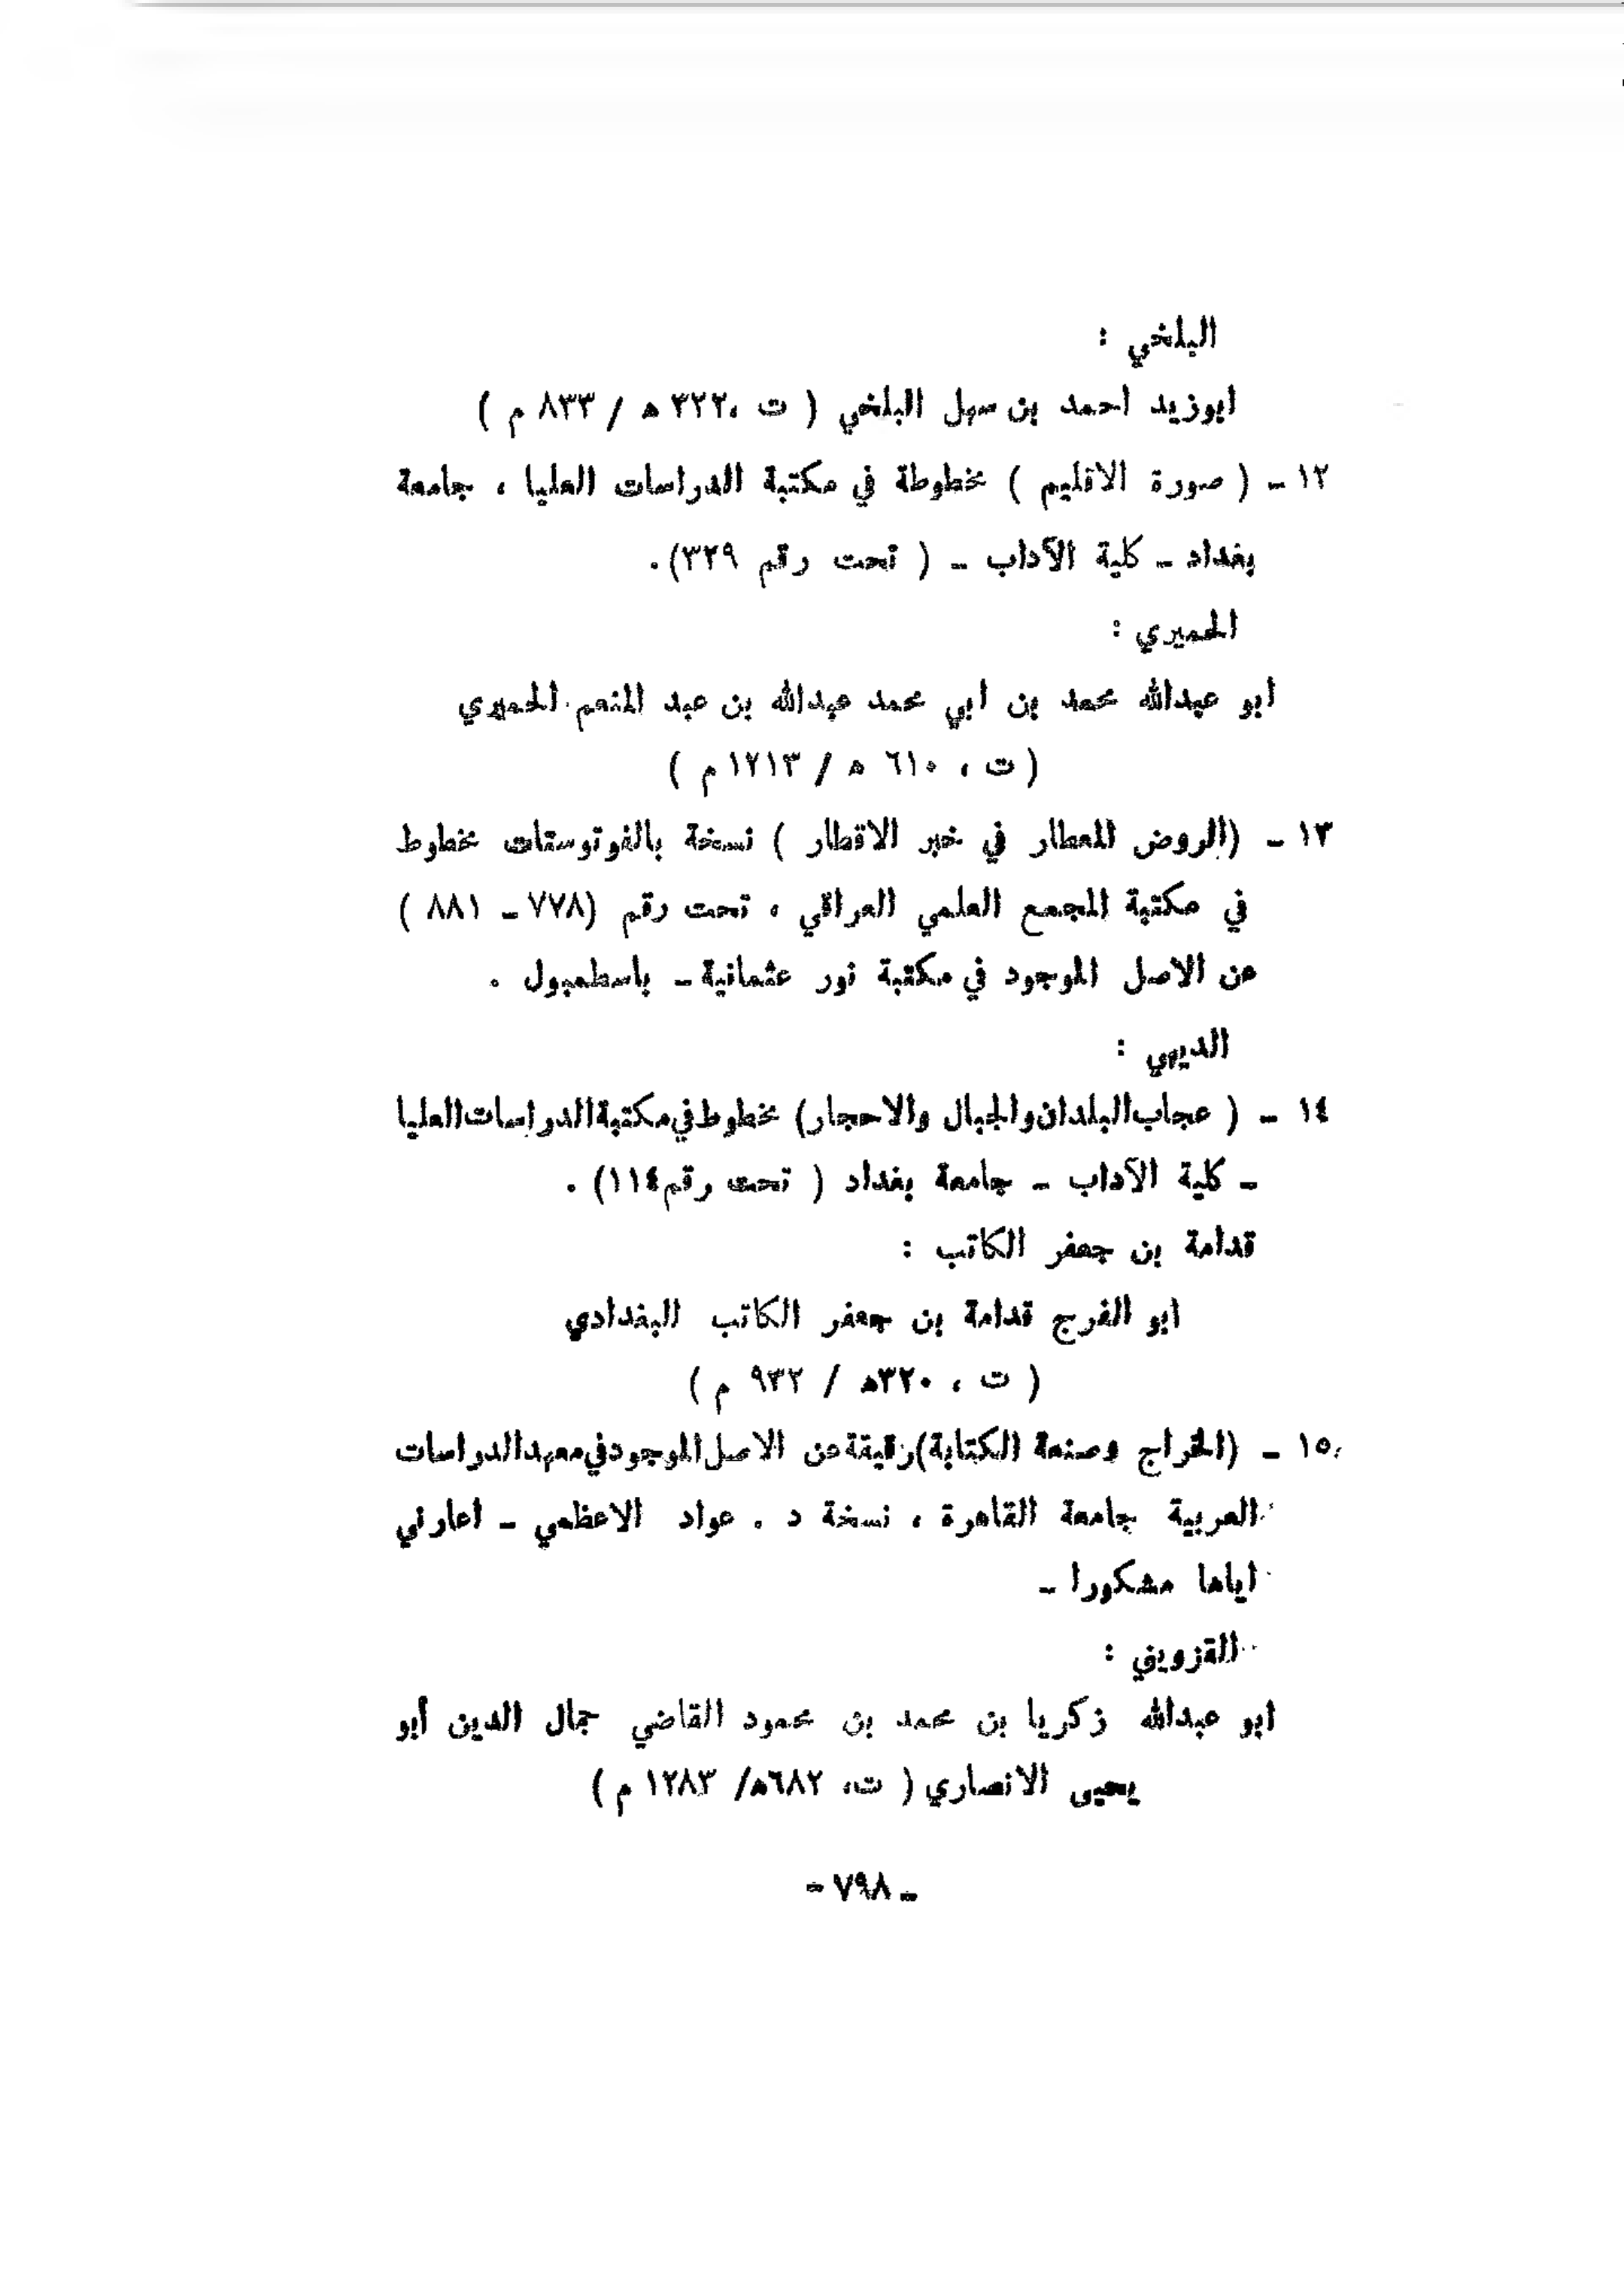 البلخي :
ابوزيد احمد بن سهل البلخي ( ت ،٣٢٢ ه / ٨٣٣ م )
١٢ ـ ( صورة الاقليم ) مخطوطة في مكتبة الدراسات العليا ، جامعة
بغداد ـ كلية الآداب ـ ( تحت رقم ٣٢٩).
الحميري :
ابو عبدالله محمد بن ابي محمد عبدالله بن عبد المنعم الحميري
( ت ، ٦١٠ ه / ١٢١٣ م )
١٣ ـ (الروض المعطار في خبر الاقطار ) نسخة بالفوتوستات مخطوط
في مكتبة المجمع العلمي العراقي ، تحت رقم (٧٧٨ ـ ٨٨١ )
عن الاصل الموجود في مكتبة نور عثمانية ـ باسطمبول .
الديهي :
١٤ ـ ( عجاب البلدان والجبال والاحجار) مخطوط في مكتبة الدراسات العليا
ـ كلية الآداب ـ جامعة بغداد ( تحت رقم ١١٤) .
قدامة بن جعفر الكاتب :
ابو الفرج قدامة بن جعفر الكاتب البغدادي
( ت ، ٣٢٠ه / ٩٣٢ م )
١٥ ـ (الخراج وصنعة الكتابة) رقيقة عن الاصل الموجود في معهد الدراسات
العربية جامعة القاهرة ، نسخة د . عواد الاعظمي ـ اعارني
اياها مشكورا ـ
القزويني :
ابو عبدالله زكريا بن محمد بن محمود القاضي جمال الدين أبو
يحيى الانصاري ( ت، ٦٨٢ه/ ١٢٨٣ م )
ـ ٧٩٨ ـ